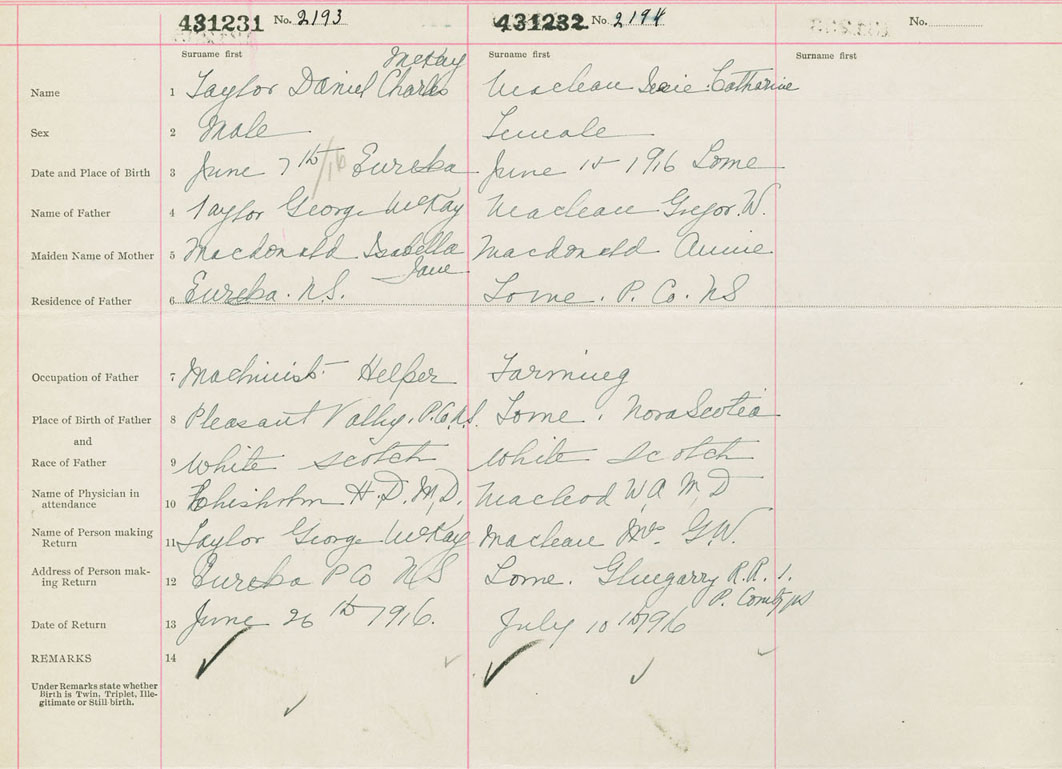 431231 No. 2193 431232 No. 2194 No.
Surname first Surname first Surname first
McKay
Name 1 Taylor Daniel Charles Maclean Catharine
Sex 2 Male Female
Date and Place of Birth 3 June 7th/16 Eureka June 1st 1916 Lorne
Name of Father 4 Taylor George McKay Maclean Gregor W.
Maiden Name of Mother 5 Macdonald Isabella Macdonald Annie
Jane
Residence of Father 6 Eureka. N.S. Lorne. P. Co. NS
Occupation of Father 7 Machinist Helper Farming
Place of Birth of Father 8 Pleasant Valley. P.Co.N.S. Lorne. Nova Scotia
and
Race of Father 9 White Scotch White Scotch
Name of Physician in
attendance 10 Chisholm H.D. M.D. Macleod W A M,D
Name of Person making
Return 11 Taylor George McKay Maclean Mrs G.W.
Address of Person mak-
ing Return 12 Eureka P Co N S Lorne. Glengarry R.R. 1.
P. County NS
Date of Return 13 June 26th 1916. July 10th 1916
REMARKS 14
Under Remarks state whether
Birth is Twin, Triplet, Ille-
gitimate or Still-birth.